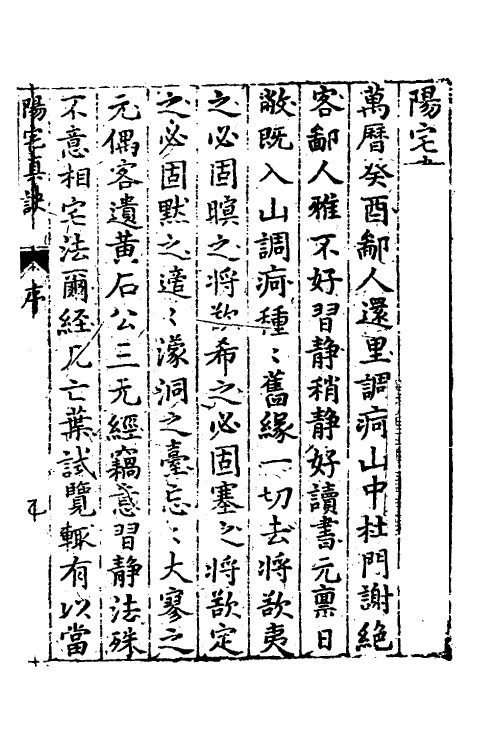 陽宅
萬曆癸酉鄙人還里調痾山中杜門謝絕
客鄙人雅不好習静稍静好讀書元禀日
敝既入山調痾種〻舊緣一切去將欲夷
之必固瞑之將欲希之必固塞之將欲定
之必固黙之遣〻濛洞之臺忘〻大寥之
元偶客遺黄石公三元經竊惑習静法殊
不意相宅法爾經凡亡葉試覽輙有以當
陽宅真訣
序